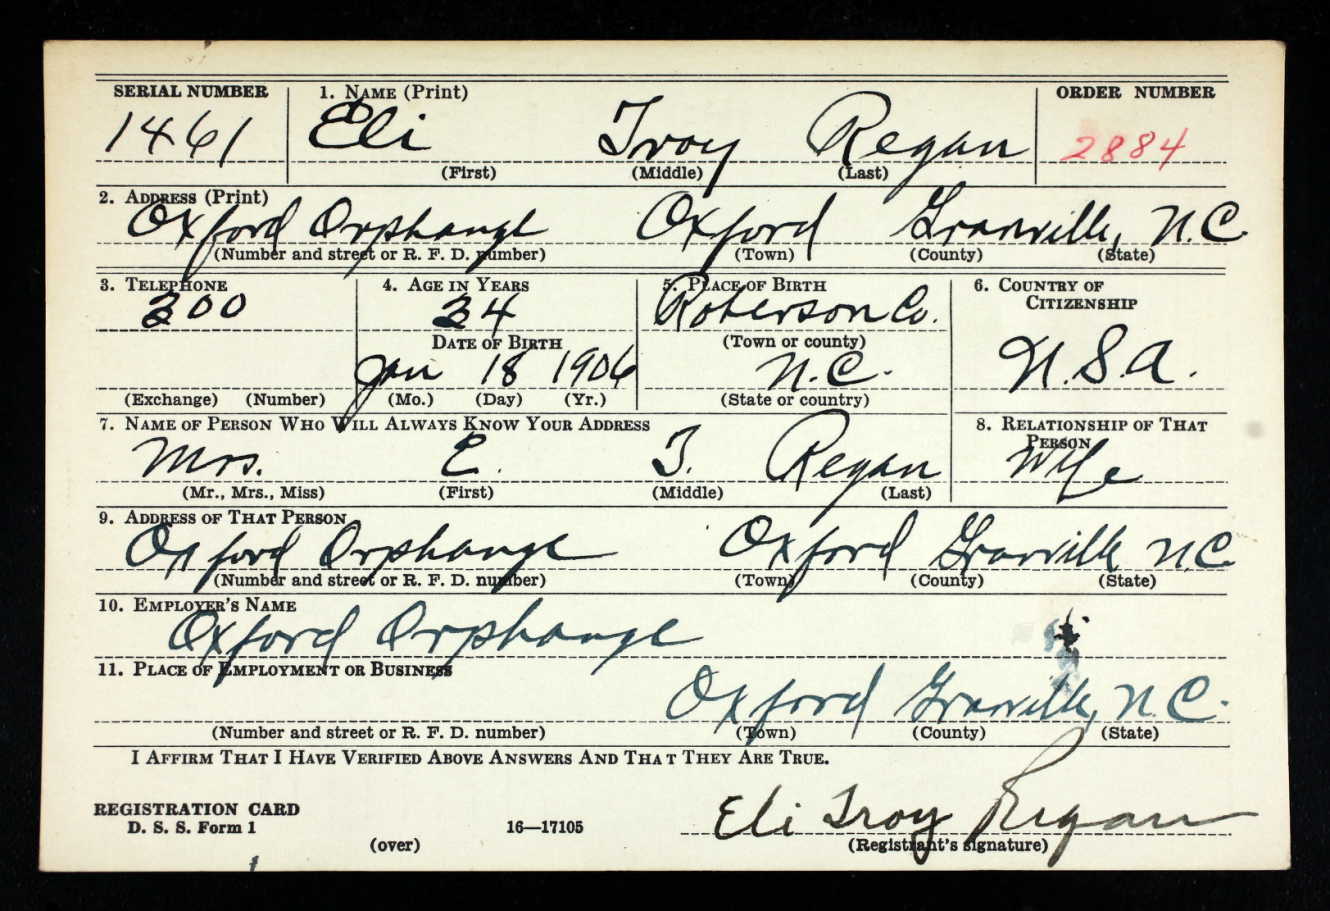 SERIAL NUMBER 1. NAME (Print) ORDER NUMBER
1461 Eli Troy Regan 2884
(First) (Middle) (Last)
2. ADDRESS (Print)
Oxford Orphange Oxford Granville, N.C.
(Number and street or R. F. D. number) (Town) (County) (State)
3. TELEPHONE 4. AGE IN YEARS 5. PLACE OF BIRTH 6. COUNTRY OF CITIZENSHIP
200 34 Roberson Co.
DATE OF BIRTH (Town or county) U.S.A.
Jan 18 1906 N.C.
(Exchange) (Number) (Mo.) (Day) (Yr.) (State or country)
7. NAME OF PERSON WHO WILL ALWAYS KNOW YOUR ADDRESS 8. RELATIONSHIP OF THAT PERSON
Mrs. E. T. Regan Wife
(Mr., Mrs., Miss) (First) (Middle) (Last)
9. ADDRESS OF THAT PERSON
Oxford Orphange Oxford Granville N.C.
(Number and street or R. F. D. number) (Town) (County) (State)
10. EMPLOYER'S NAME
Oxford Orphange
11. PLACE OF EMPLOYMENT OR BUSINESS
Oxford Granville, N.C.
(Number and street or R. F. D. number) (Town) (County) (State)
I AFFIRM THAT I HAVE VERIFIED ABOVE ANSWERS AND THAT THEY ARE TRUE.
REGISTRATION CARD
D. S. S. Form 1 16—17105 Eli Troy Regan
(over) (Registrant's signature)